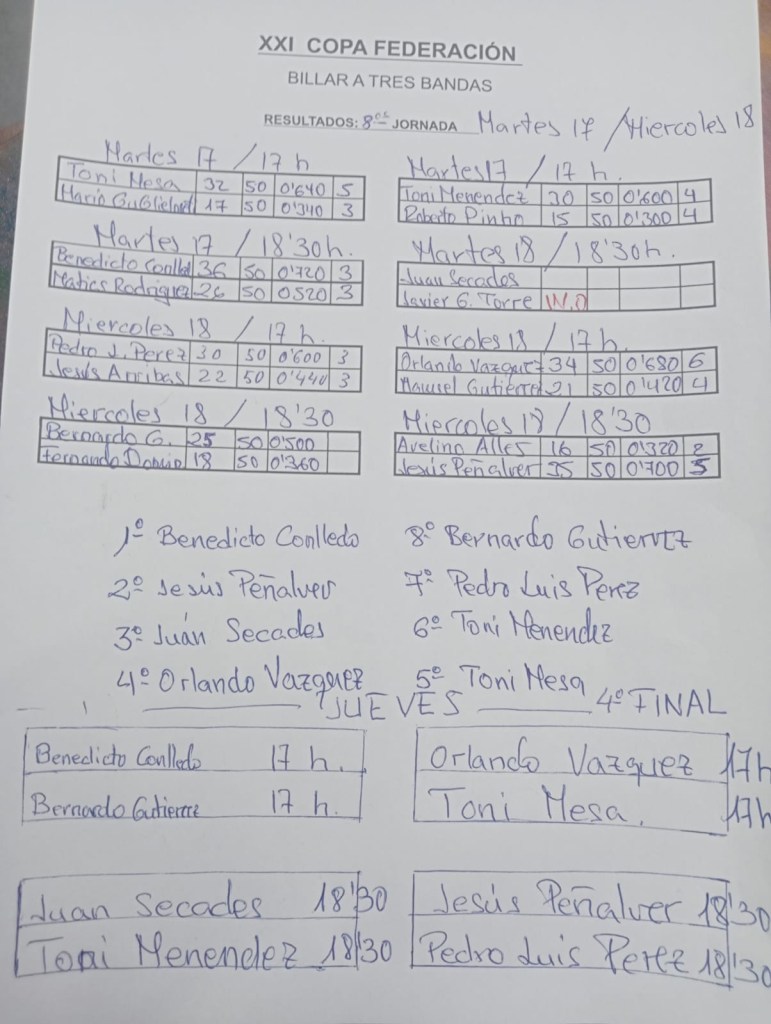 XXI COPA FEDERACIÓN
BILLAR A TRES BANDAS
RESULTADOS: 8ª JORNADA Martes 17 / Miercoles 18
Martes 17 / 17 h
Toni Mesa 32 50 0'640 5
Mario 17 50 0'340 3
Martes 17 / 17 h.
Toni Menendez 30 50 0'600 4
Roberto Pinho 15 50 0'300 4
Martes 17 / 18'30h.
Benedicto 36 50 0'720 3
Matias Rodriguez 26 50 0520 3
Martes 18 / 18'30h.
Juan Secados
Javier G. Torre W.O
Miercoles 18 / 17 h.
Pedro J. Perez 30 50 0'600 3
Jesús Arribas 22 50 0'440 3
Miercoles 18 / 17 h.
Orlando Vazquez 34 50 0'680 6
Manuel Gutierre 21 50 0'420 4
Miercoles 18 / 18'30
Bernardo G. 25 50 0'500
Fernando 18 50 0'360
Miercoles 18 / 18'30
Avelino Alles 16 50 0'320 2
Jesús Peñalver 35 50 0'700 5
1º Benedicto Conlledo
2º Jesús Peñalver
3º Juan Secades
4º Orlando Vazquez
8º Bernardo Gutierrez
7º Pedro Luis Perez
6º Toni Menendez
5º Toni Mesa
JUEVES 4º FINAL
Benedicto Conlledo 17 h.
Bernardo Gutierrre 17 h.
Orlando Vazquez 17h
Toni Mesa. 17h
Juan Secades 18'30
Toni Menendez 18'30
Jesús Peñalver 18'30
Pedro Luis Perez 18'30